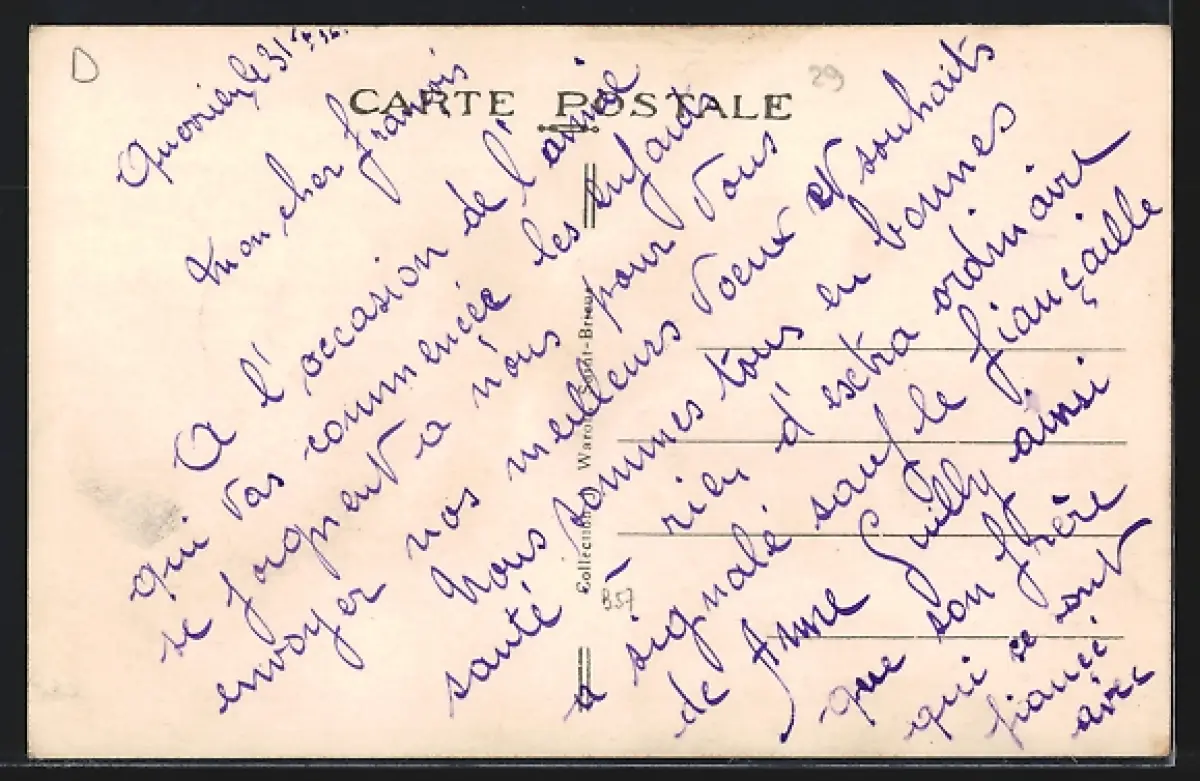 D
29
CARTE POSTALE
Collection Waron, Saint-Brieuc
B57
Querrien, le 31
Mon cher françois
A l'occasion de l'année
qui vas commencée les enfants
se joignent a nous pour vous
envoyer nos meilleurs voeux et souhaits
Nous sommes tous en bonnes
santé - rien d'extra ordinaire
a signalé sauf le fiançaille
de Anne Guilly ainsi
que son frère
qui se sont
fiancé
avec